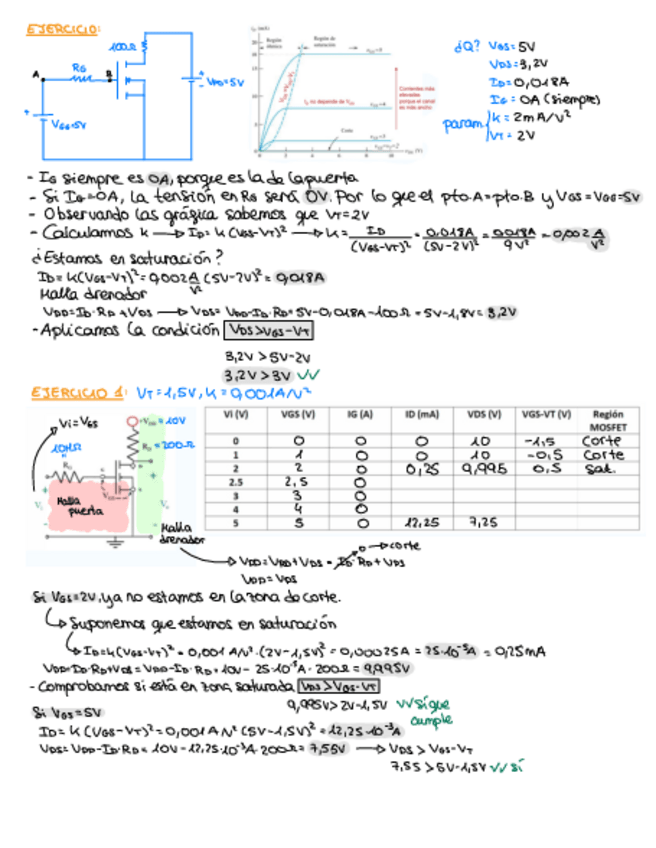 EJERCICIO:
100Ω
A
RG
B
VDD=5V
VGG=5V
Región óhmica
Región de saturación
ID no depende de VDS
Corte
Corrientes más elevadas porque el canal es más ancho
¿Q? VGS=5V
VDS=3,2V
ID=0,018A
IG=0A (siempre)
param. K=2mA/V²
VT=2V
- IG siempre es 0A, porque es la de la puerta
- Si IG=0A, la tensión en RG será 0V. Por lo que el pto.A=pto.B y VGS=VGG=5V
- Observando las gráfica sabemos que VT=2V
- Calculamos K → ID=K(VGS-VT)² → K= ID/(VGS-VT)² = 0,018A/(5V-2V)² = 0,018A/9V² = 0,002 A/V²
¿Estamos en saturación?
ID=K(VGS-VT)²=0,002 A/V² (5V-2V)²=0,018A
Malla drenador
VDD=ID·RD+VDS → VDS=VDD-ID·RD=5V-0,018A-100Ω=5V-1,8V=3,2V
- Aplicamos la condición VDS>VGS-VT
3,2V>5V-2V
3,2V>3V ✓✓
EJERCICIO 1: VT=1,5V, K=0,001A/V²
Vi=VGS
10MΩ
RG
+VDD=10V
RD=200Ω
Malla puerta
Malla drenador
Vi (V) VGS (V) IG (A) ID (mA) VDS (V) VGS-VT (V) Región MOSFET
0 0 0 0 10 -1,5 Corte
1 1 0 0 10 -0,5 Corte
2 2 0 0,25 9,995 0,5 Sat.
2.5 2,5 0
3 3 0
4 4 0
5 5 0 12,25 7,25
→ VDD=VRD+VDS=ID·RD+VDS
0→corte
VDD=VDS
Si VGS=2V, ya no estamos en la zona de corte.
↳ Suponemos que estamos en saturación
↳ ID=K(VGS-VT)²=0,001 A/V²·(2V-1,5V)²=0,00025A=25·10⁻⁵A=0,25mA
VDD=ID·RD+VDS=VDD-ID·RD=10V-25·10⁻⁵A·200Ω=9,995V
- Comprobamos si está en zona saturada VDS>VGS-VT
9,995V>2V-1,5V ✓✓ Sí que cumple
Si VGS=5V
ID=K(VGS-VT)²=0,001A/V²(5V-1,5V)²=12,25·10⁻³A
VDS=VDD-ID·RD=10V-12,25·10⁻³A·200Ω=7,55V → VDS>VGS-VT
7,55>5V-1,5V ✓✓ sí